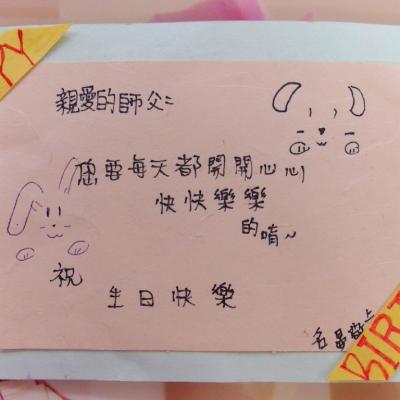 PY
親愛的師父：
您要每天都開開心心
快快樂樂
的唷~
祝
生日快樂
敬上
BIRT